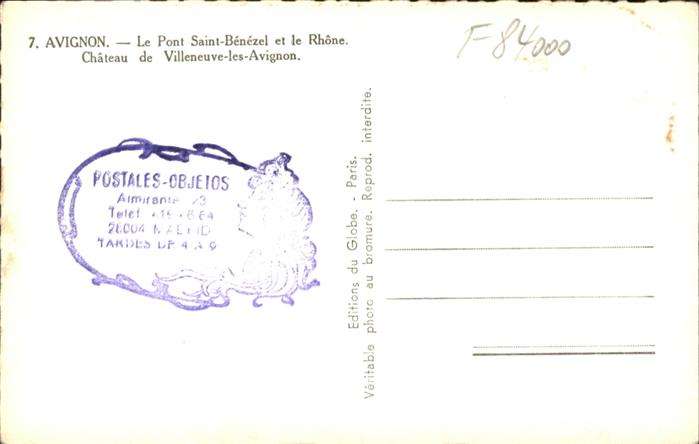 7. AVIGNON. — Le Pont Saint-Bénézel et le Rhône.
Château de Villeneuve-les-Avignon.
F-84000
POSTALES-OBJETOS
Almirante 23
Telef
28004 MADRID
TARDES DE 4 A 9
Editions du Globe. - Paris.
Véritable photo au bromure. Reprod. interdite.